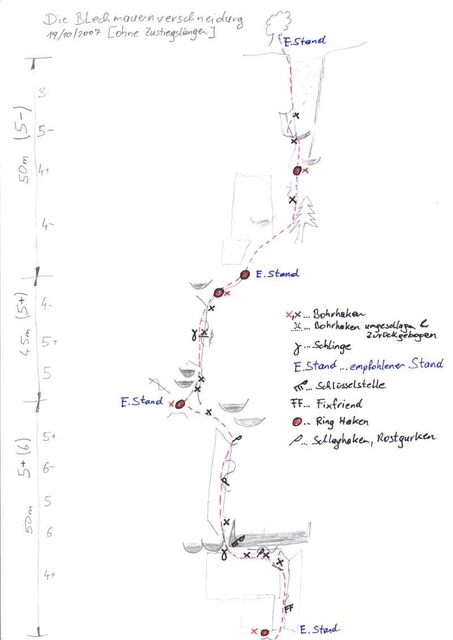 Die Blechmauernverschneidung
19/10/2007 [ohne Zustiegslängen]
E.Stand
3
5-
50m (5-)
4+
4-
E.Stand
4-
45m (5+)
5+
5
E.Stand
5+
5+(6)
6-
5
6
50m
4+
FF
E.Stand
x,x... Bohrhaken
x ... Bohrhaken umgeschlagen &
zurückgebogen
γ ... Schlinge
E.Stand ... empfohlener Stand
... Schlüsselstelle
FF ... Fixfriend
... Ring Haken
... Schlaghaken, Rostgurken